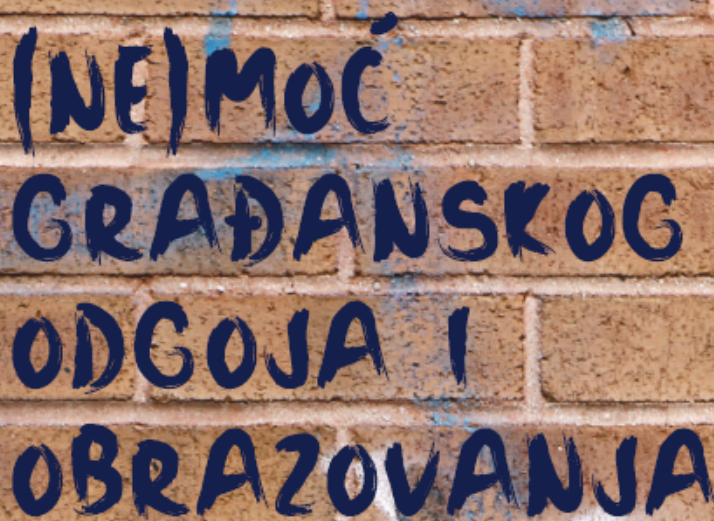 (NE)MOĆ
GRAĐANSKOG
ODGOJA I
OBRAZOVANJA